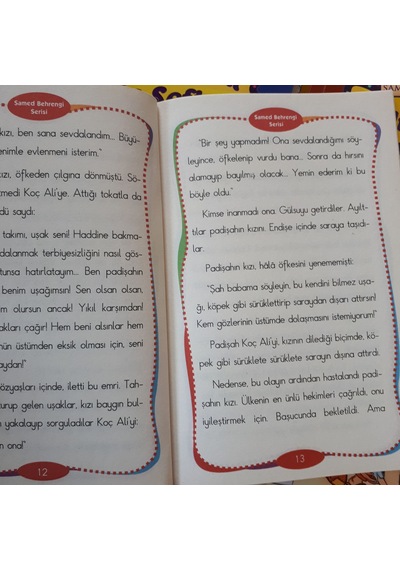 Samed Behrengi
Serisi
kızı, ben sana sevdalandım... Büyü-
enimle evlenmeni isterim."
kızı, öfkeden çılgına dönmüştü. Sö-
tmedi Koç Ali'ye. Attığı tokatla da
dü saydı:
takımı, uşak seni! Haddine bakma-
dalanmak terbiyesizliğini nasıl gös-
tunsa hatırlatayım... Ben padişahın
benim uşağımsın! Sen olsan olsan,
m olursun ancak! Yıkıl karşımdan!
akları çağır! Hem beni alsınlar hem
ünün üstümden eksik olması için, seni
aydan!"
özyaşları içinde, iletti bu emri. Tah-
urup gelen uşaklar, kızı baygın bul-
n yakalayıp sorguladılar Koç Ali'yi:
n ona!"
12
Samed Behrengi
Serisi
"Bir şey yapmadım! Ona sevdalandığımı söy-
leyince, öfkelenip vurdu bana... Sonra da hırsını
alamayıp bayılmış olacak... Yemin ederim ki bu
böyle oldu."
Kimse inanmadı ona. Gülsuyu getirdiler. Ayılt-
tılar padişahın kızını. Endişe içinde saraya taşıdı-
lar.
Padişahın kızı, hâlâ öfkesini yenememişti:
"Şah babama söyleyin, bu kendini bilmez uşa-
ğı, köpek gibi sürüklettirip saraydan dışarı attırsın!
Kem gözlerinin üstümde dolaşmasını istemiyorum!"
Padişah Koç Ali'yi, kızının dilediği biçimde, kö-
pek gibi sürüklete sürüklete sarayın dışına attırdı.
Nedense, bu olayın ardından hastalandı padi-
şahın kızı. Ülkenin en ünlü hekimleri çağrıldı, onu
iyileştirmek için. Başucunda bekletildi. Ama
13